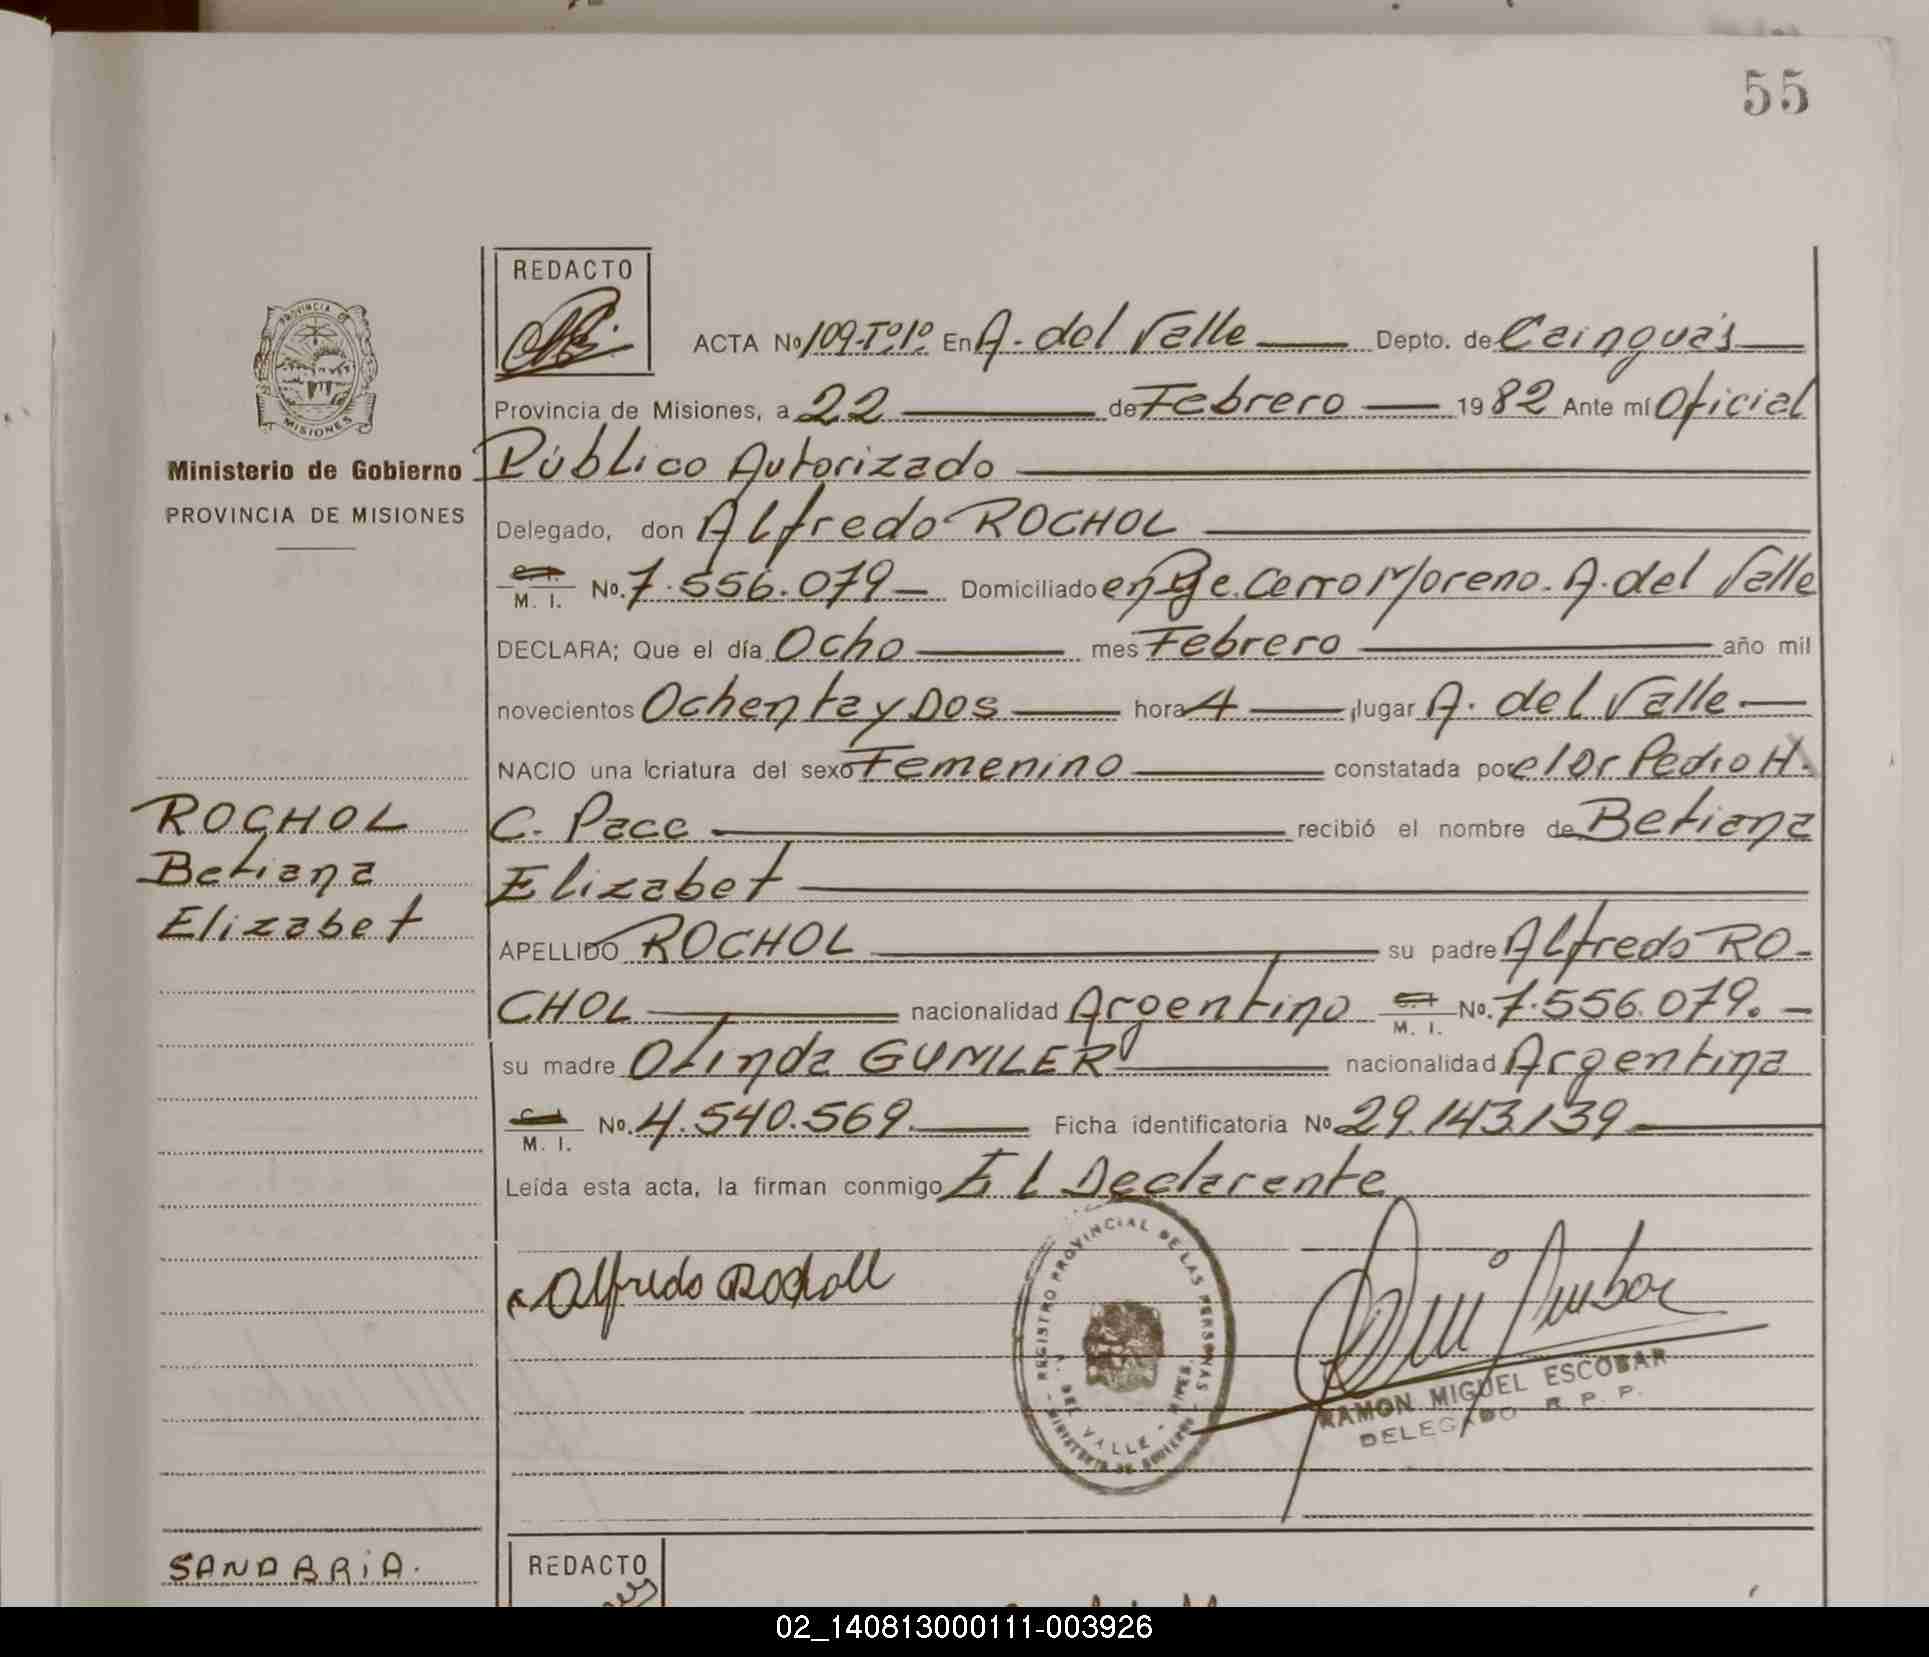 55
REDACTO
ACTA No 109-Tº1º. En A. del Valle Depto. de Cainguás
Provincia de Misiones, a 22 de Febrero 1982 Ante mí Oficial
Ministerio de Gobierno
Público Autorizado
PROVINCIA DE MISIONES
Delegado, don Alfredo ROCHOL
C. I. M. I. No. 7.556.079 Domiciliado en Pje. Cerro Moreno. A. del Valle
DECLARA; Que el día Ocho mes Febrero año mil
novecientos Ochenta y Dos hora 4 lugar A. del Valle
NACIO una criatura del sexo Femenino constatada por el Dr Pedro H.
C. Pace recibió el nombre de Betiana
Elizabet
ROCHOL
Betiana
Elizabet
APELLIDO ROCHOL su padre Alfredo RO-
CHOL nacionalidad Argentino C. I. M. I. No. 7.556.079.
su madre Olinda GUMLER nacionalidad Argentina
C. I. M. I. No. 4.540.569. Ficha identificatoria No 29.143.139
Leída esta acta, la firman conmigo El Declarante
Alfredo Rocholl
REGISTRO PROVINCIAL DE LAS PERSONAS
A. DEL VALLE - MNES.
MINISTERIO DE GOBIERNO
RAMON MIGUEL ESCOBAR
DELEGADO R. P. P.
SANABRIA.
REDACTO
PROVINCIA DE MISIONES
02_140813000111-003926